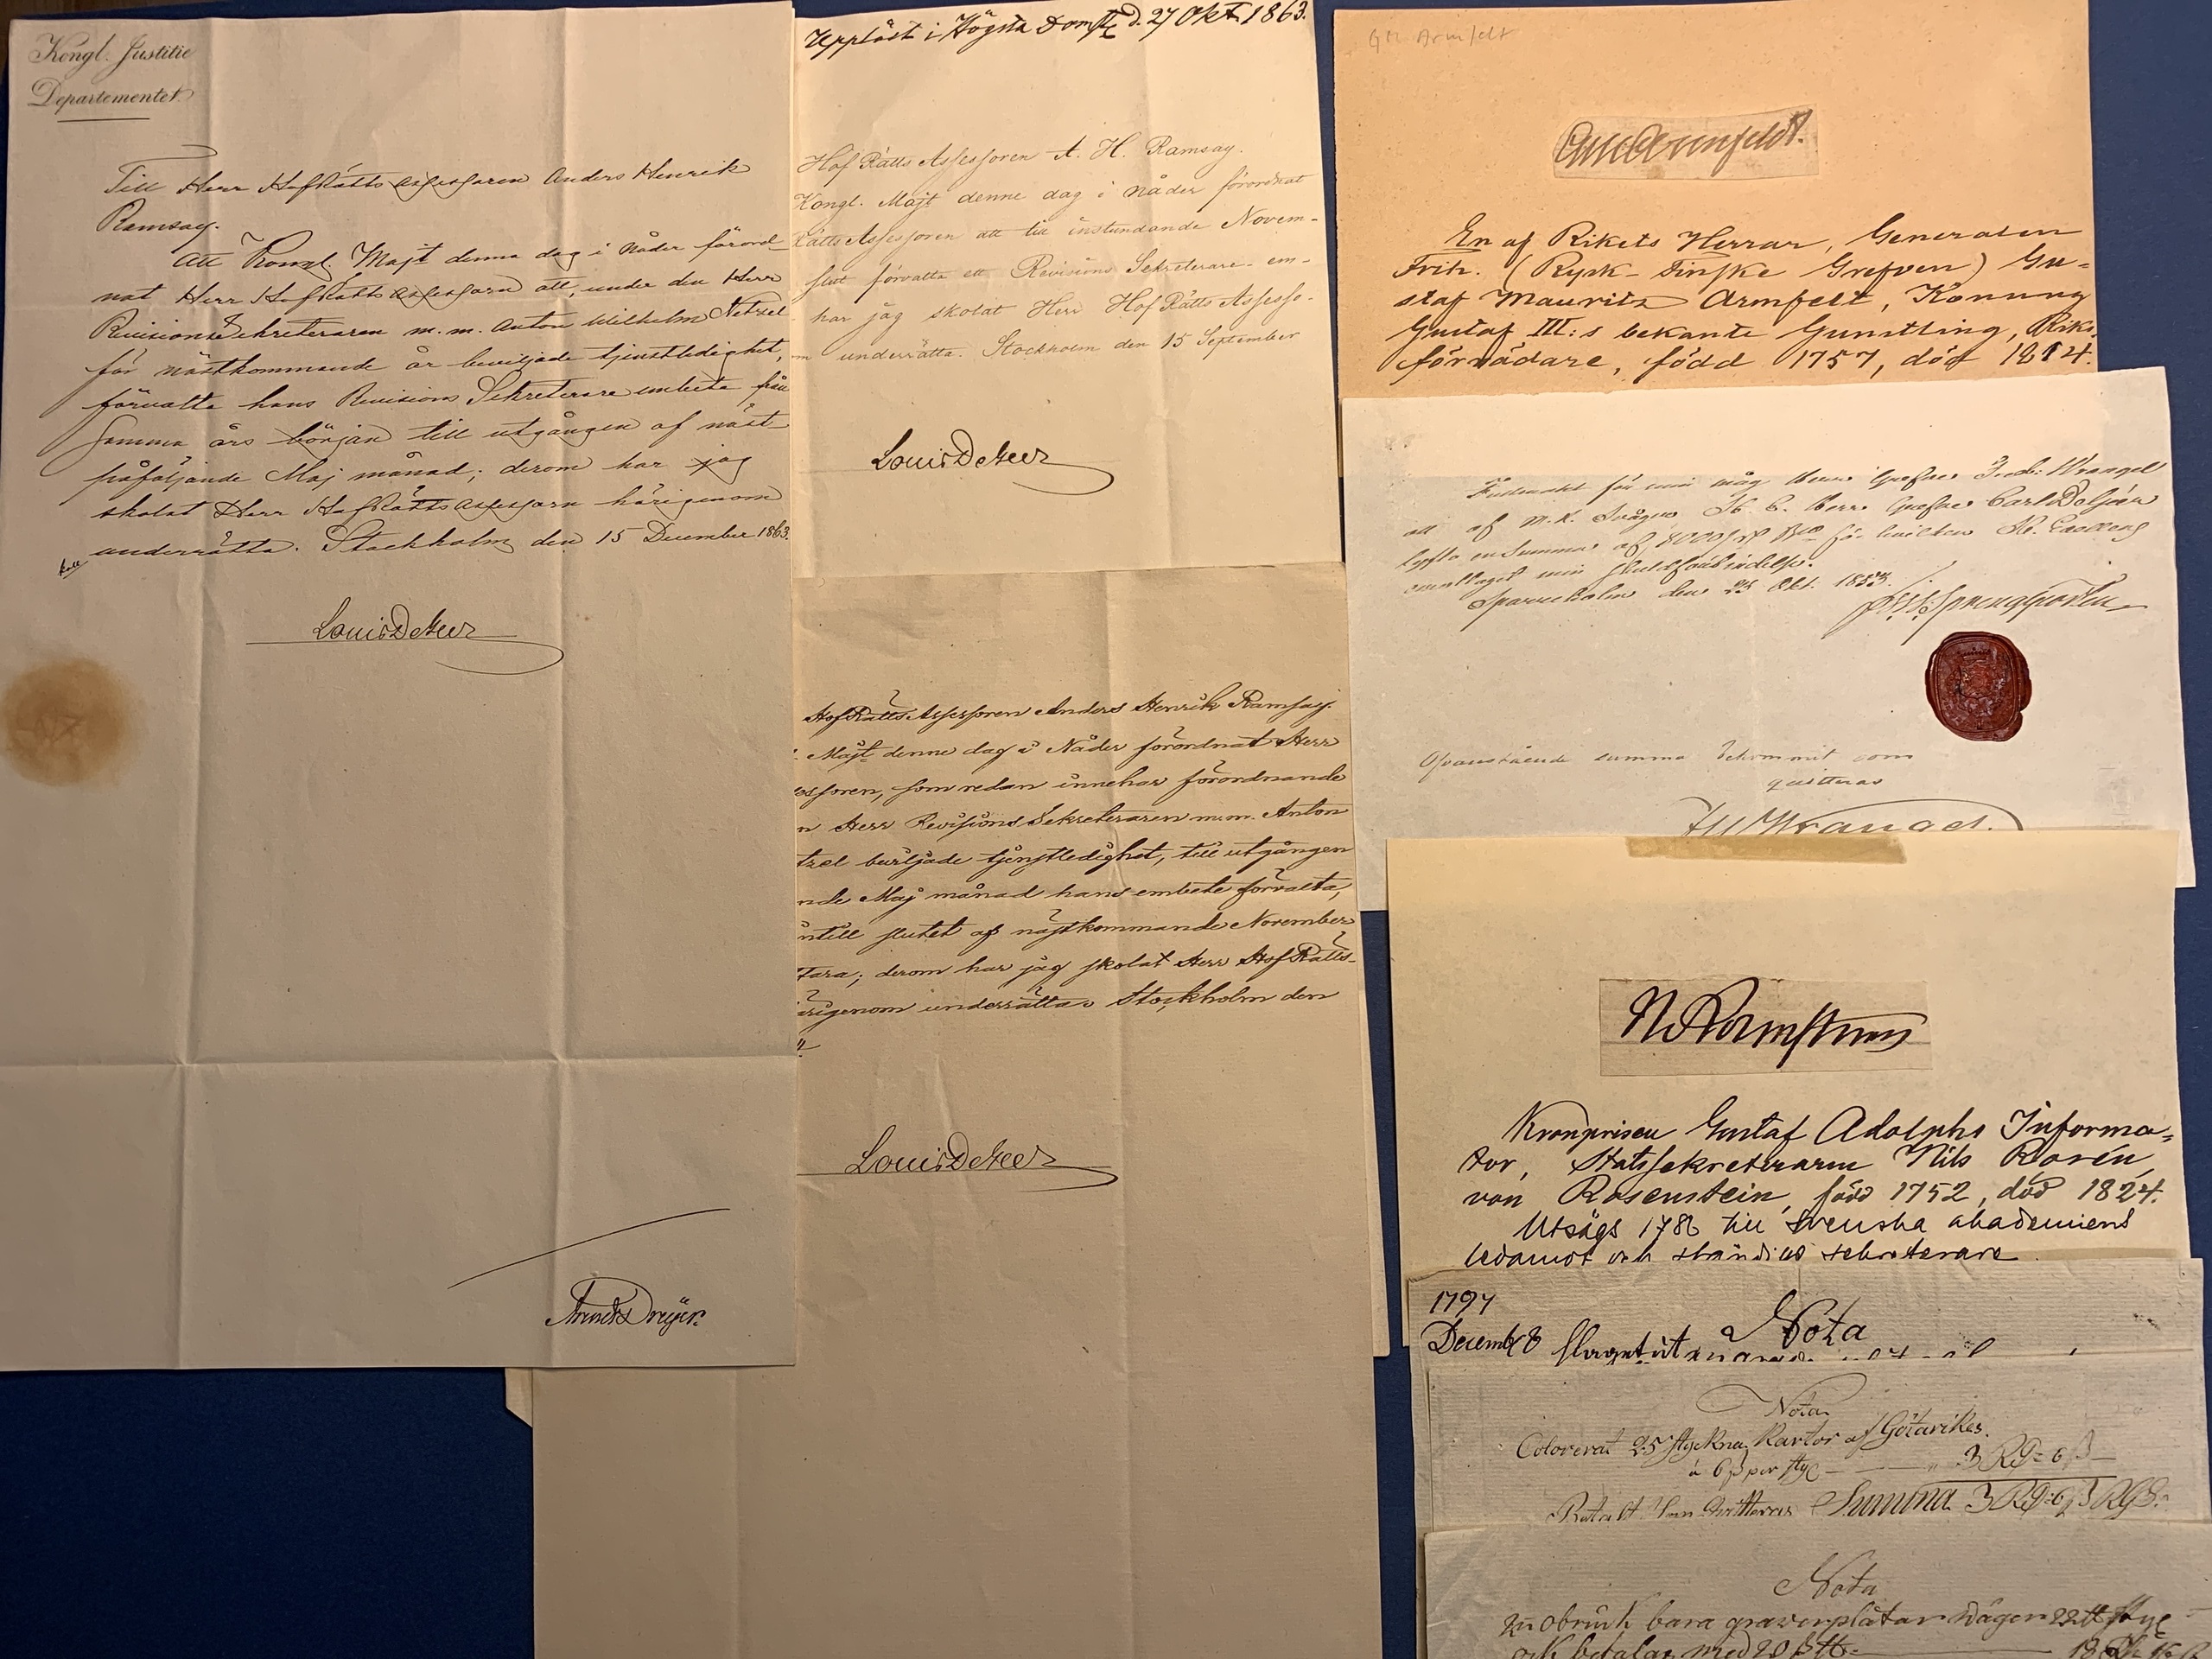 Kongl. Justitie
Departementet.
Till Herr HofRätts Assessoren Anders Henrik
Ramsay.
Att Kongl. Majt denna dag i Nåder förord-
nat Herr HofRätts Assessorn att, under den Herr
RevisionsSekreteraren m. m. Anton Wilhelm Netzel
för nästkommande år beviljade tjenstledighet,
förvalta hans Revisions Sekreterare embete från
samma års början till utgången af näst-
påföljande Maj månad; derom har jag
skolat Herr HofRätts Assessorn härigenom
underrätta. Stockholm den 15 December 1863.
Louis De Geer
Uppläst i Högsta Domst. d. 27 Okt. 1863.
Hof Rätts Assessoren A. H. Ramsay.
Kongl. Majt denne dag i nåder förordnat
Rätts Assessoren att till instundande Novem-
slut förvalta ett Revisions Sekreterare-em-
har jag skolat Herr Hof Rätts Assesso-
m underrätta. Stockholm den 15 September
Louis De Geer
HofRätts Assessoren Anders Henrik Ramsay.
. Majt denne dag i Nåder förordnat Herr
essoren, som redan innehar förordnande
n Herr Revisions Sekreteraren m. m. Anton
tzel beviljade tjenstledighet, till utgången
nde Maj månad hans embete förvalta,
intill slutet af nästkommande November
tara; derom har jag skolat Herr Hof Rätts-
ärigenom underrätta. Stockholm den
Louis De Geer
GM Armfelt
GMArmfeldt.
En af Rikets Herrar, Generalen
Frih. (Rysk-Finske Grefven) Gu-
staf Mauritz Armfelt, Konung
Gustaf III:s bekante Gunstling, Riks
förrädare, född 1757, död 1814.
Fullmakt för min måg Herr Grefve Fredr. Wrangel
att af m. k. Svåger H. E. Herr Grefve Carl
lyfta en Summa af
emottaget min skuldförbindelse.
Sparreholm den Okt.
Sprengtporten
Ofvanstående summa bekommit som
quitteras
Wrangel.
Kronprisen Gustaf Adolphs Informa-
tor, Statssekreteraren Nils Rosén
von Rosenstein, född 1752, död 1824.
Utsågs 1786 till Svenska akademiens
ledamot och ständige sekreterare
1797
Nota
Decemb 8
Nota
Colorerat 25 stycken Kartor af Götarikes.
á 6 ß per styc — — " 3 Rd = 6 ß —
Betalt Som Qvitteras Summa 3 Rd = 6 ß RGS.
Nota
obrukbara graverplåtar Väger 22 tt
och betalas med 20 ß tt